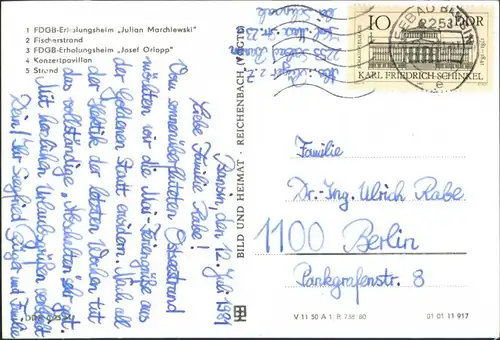 1 FDGB-Erholungsheim „Julian Marchlewski"
2 Fischerstrand
3 FDGB-Erholungsheim „Josef Orlopp"
4 Konzertpavillon
5 Strand
Bansin, den 12. Juli 1981
Liebe Familie Rabe!
Vom sonnenüberfluteten Ostseestrand
möchten wir die Mai-Feriengrüße aus
der Goldenen Stadt erwidern. Nach all
der Hektik der letzten Wochen tut
das vollständige „Abschalten" sehr gut.
Mit herzlichen Urlaubsgrüßen verbleibt
Dein/Ihr Siegfried und Familie
BILD UND HEIMAT · REICHENBACH (VOGTL)
10 DDR
KARL FRIEDRICH SCHINKEL
2253
e
Familie
Dr.-Ing. Ulrich Rabe
1100 Berlin
Parkgrafenstr. 8
V 11 50 A 1 B 738/80
01 01 11 917